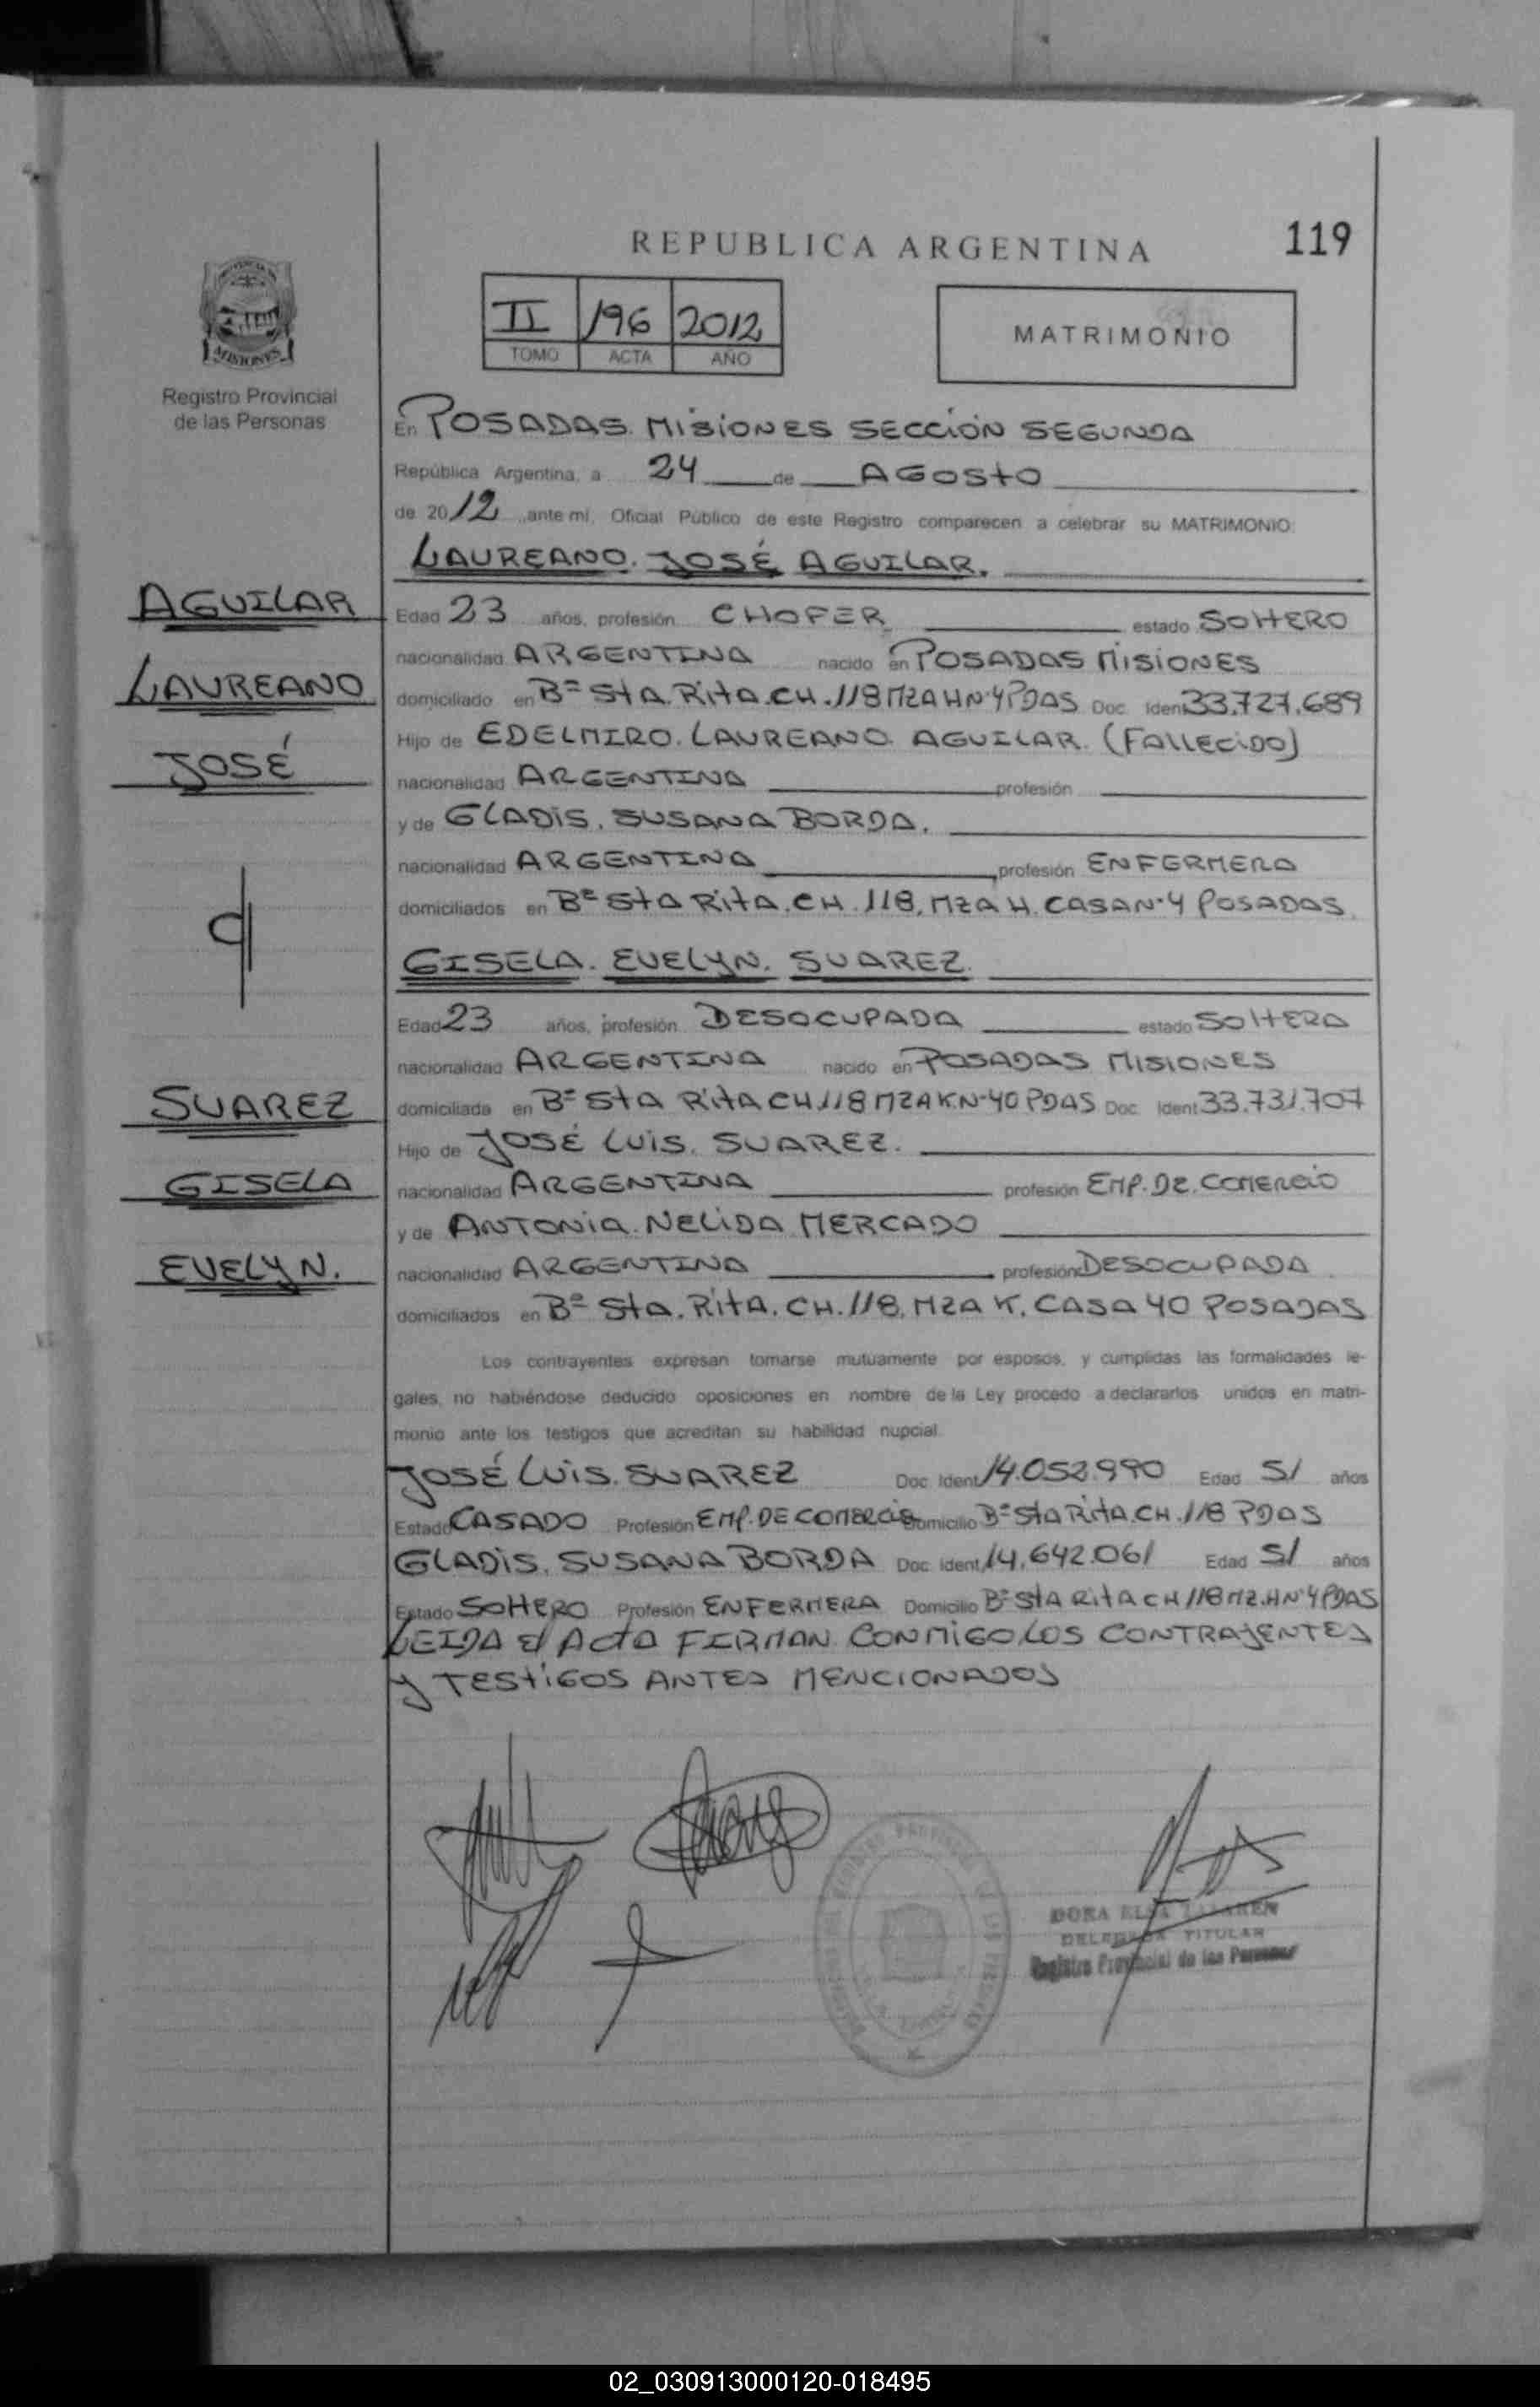 REPUBLICA ARGENTINA
119
II 196 2012
TOMO ACTA AÑO
MATRIMONIO
MISIONES
Registro Provincial
de las Personas
En POSADAS. MISIONES SECCIÓN SEGUNDA
República Argentina, a 24 de AGOSTO
de 2012, ante mí, Oficial Público de este Registro comparecen a celebrar su MATRIMONIO:
LAUREANO. JOSÉ AGUILAR.
AGUILAR
LAUREANO
JOSÉ
Edad 23 años, profesión CHOFER estado SOLTERO
nacionalidad ARGENTINA nacido en POSADAS MISIONES
domiciliado en Bº STA. RITA.CH.118 MZA H Nº4 PDAS Doc. Ident 33.727.689
Hijo de EDELMIRO. LAUREANO. AGUILAR. (FALLECIDO)
nacionalidad ARGENTINA profesión
y de GLADIS. SUSANA BORDA.
nacionalidad ARGENTINA profesión ENFERMERA
domiciliados en Bº STA RITA. CH. 118, MZA H. CASA Nº4 POSADAS.
GISELA. EVELYN. SUAREZ.
SUAREZ
GISELA
EVELYN.
Edad 23 años, profesión DESOCUPADA estado SOLTERA
nacionalidad ARGENTINA nacido en POSADAS MISIONES
domiciliada en Bº STA RITA CH 118 MZA K Nº40 PDAS Doc. Ident 33.731.707
Hijo de JOSÉ LUIS. SUAREZ.
nacionalidad ARGENTINA profesión EMP. DE. COMERCIO
y de ANTONIA. NELIDA MERCADO
nacionalidad ARGENTINA profesión DESOCUPADA
domiciliados en Bº STA. RITA. CH. 118, MZA K. CASA 40 POSADAS
Los contrayentes expresan tomarse mutuamente por esposos, y cumplidas las formalidades le-
gales, no habiéndose deducido oposiciones en nombre de la Ley procedo a declararlos unidos en matri-
monio ante los testigos que acreditan su habilidad nupcial.
JOSÉ LUIS. SUAREZ Doc. Ident 14.052.990 Edad 51 años
Estado CASADO Profesión EMP. DE COMERCIO Domicilio Bº STA RITA. CH. 118 PDAS
GLADIS. SUSANA BORDA Doc. Ident 14.642.061 Edad 51 años
Estado SOLTERO Profesión ENFERMERA Domicilio Bº STA RITA CH 118 MZ. H Nº4 PDAS
LEIDA El ACTA FIRMAN CONMIGO LOS CONTRAJENTES
y TESTIGOS ANTES MENCIONADOS
DORA ELSA
DELEGADA TITULAR
Registro Provincial de las Personas
02_030913000120-018495